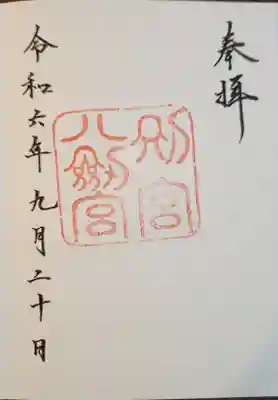 奉拝
別宮
八剱宮
令和六年九月二十日